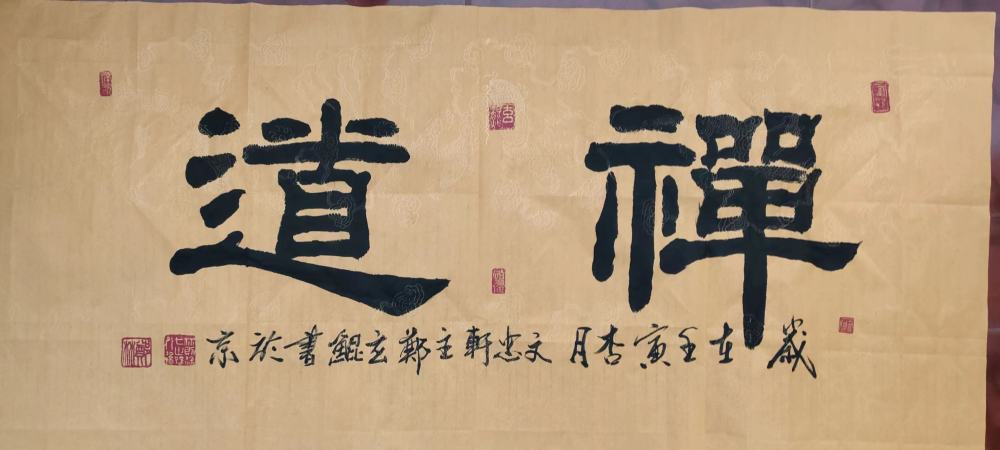 禪道
歲在壬寅杏月文忠軒主鄭玄鯤書於京